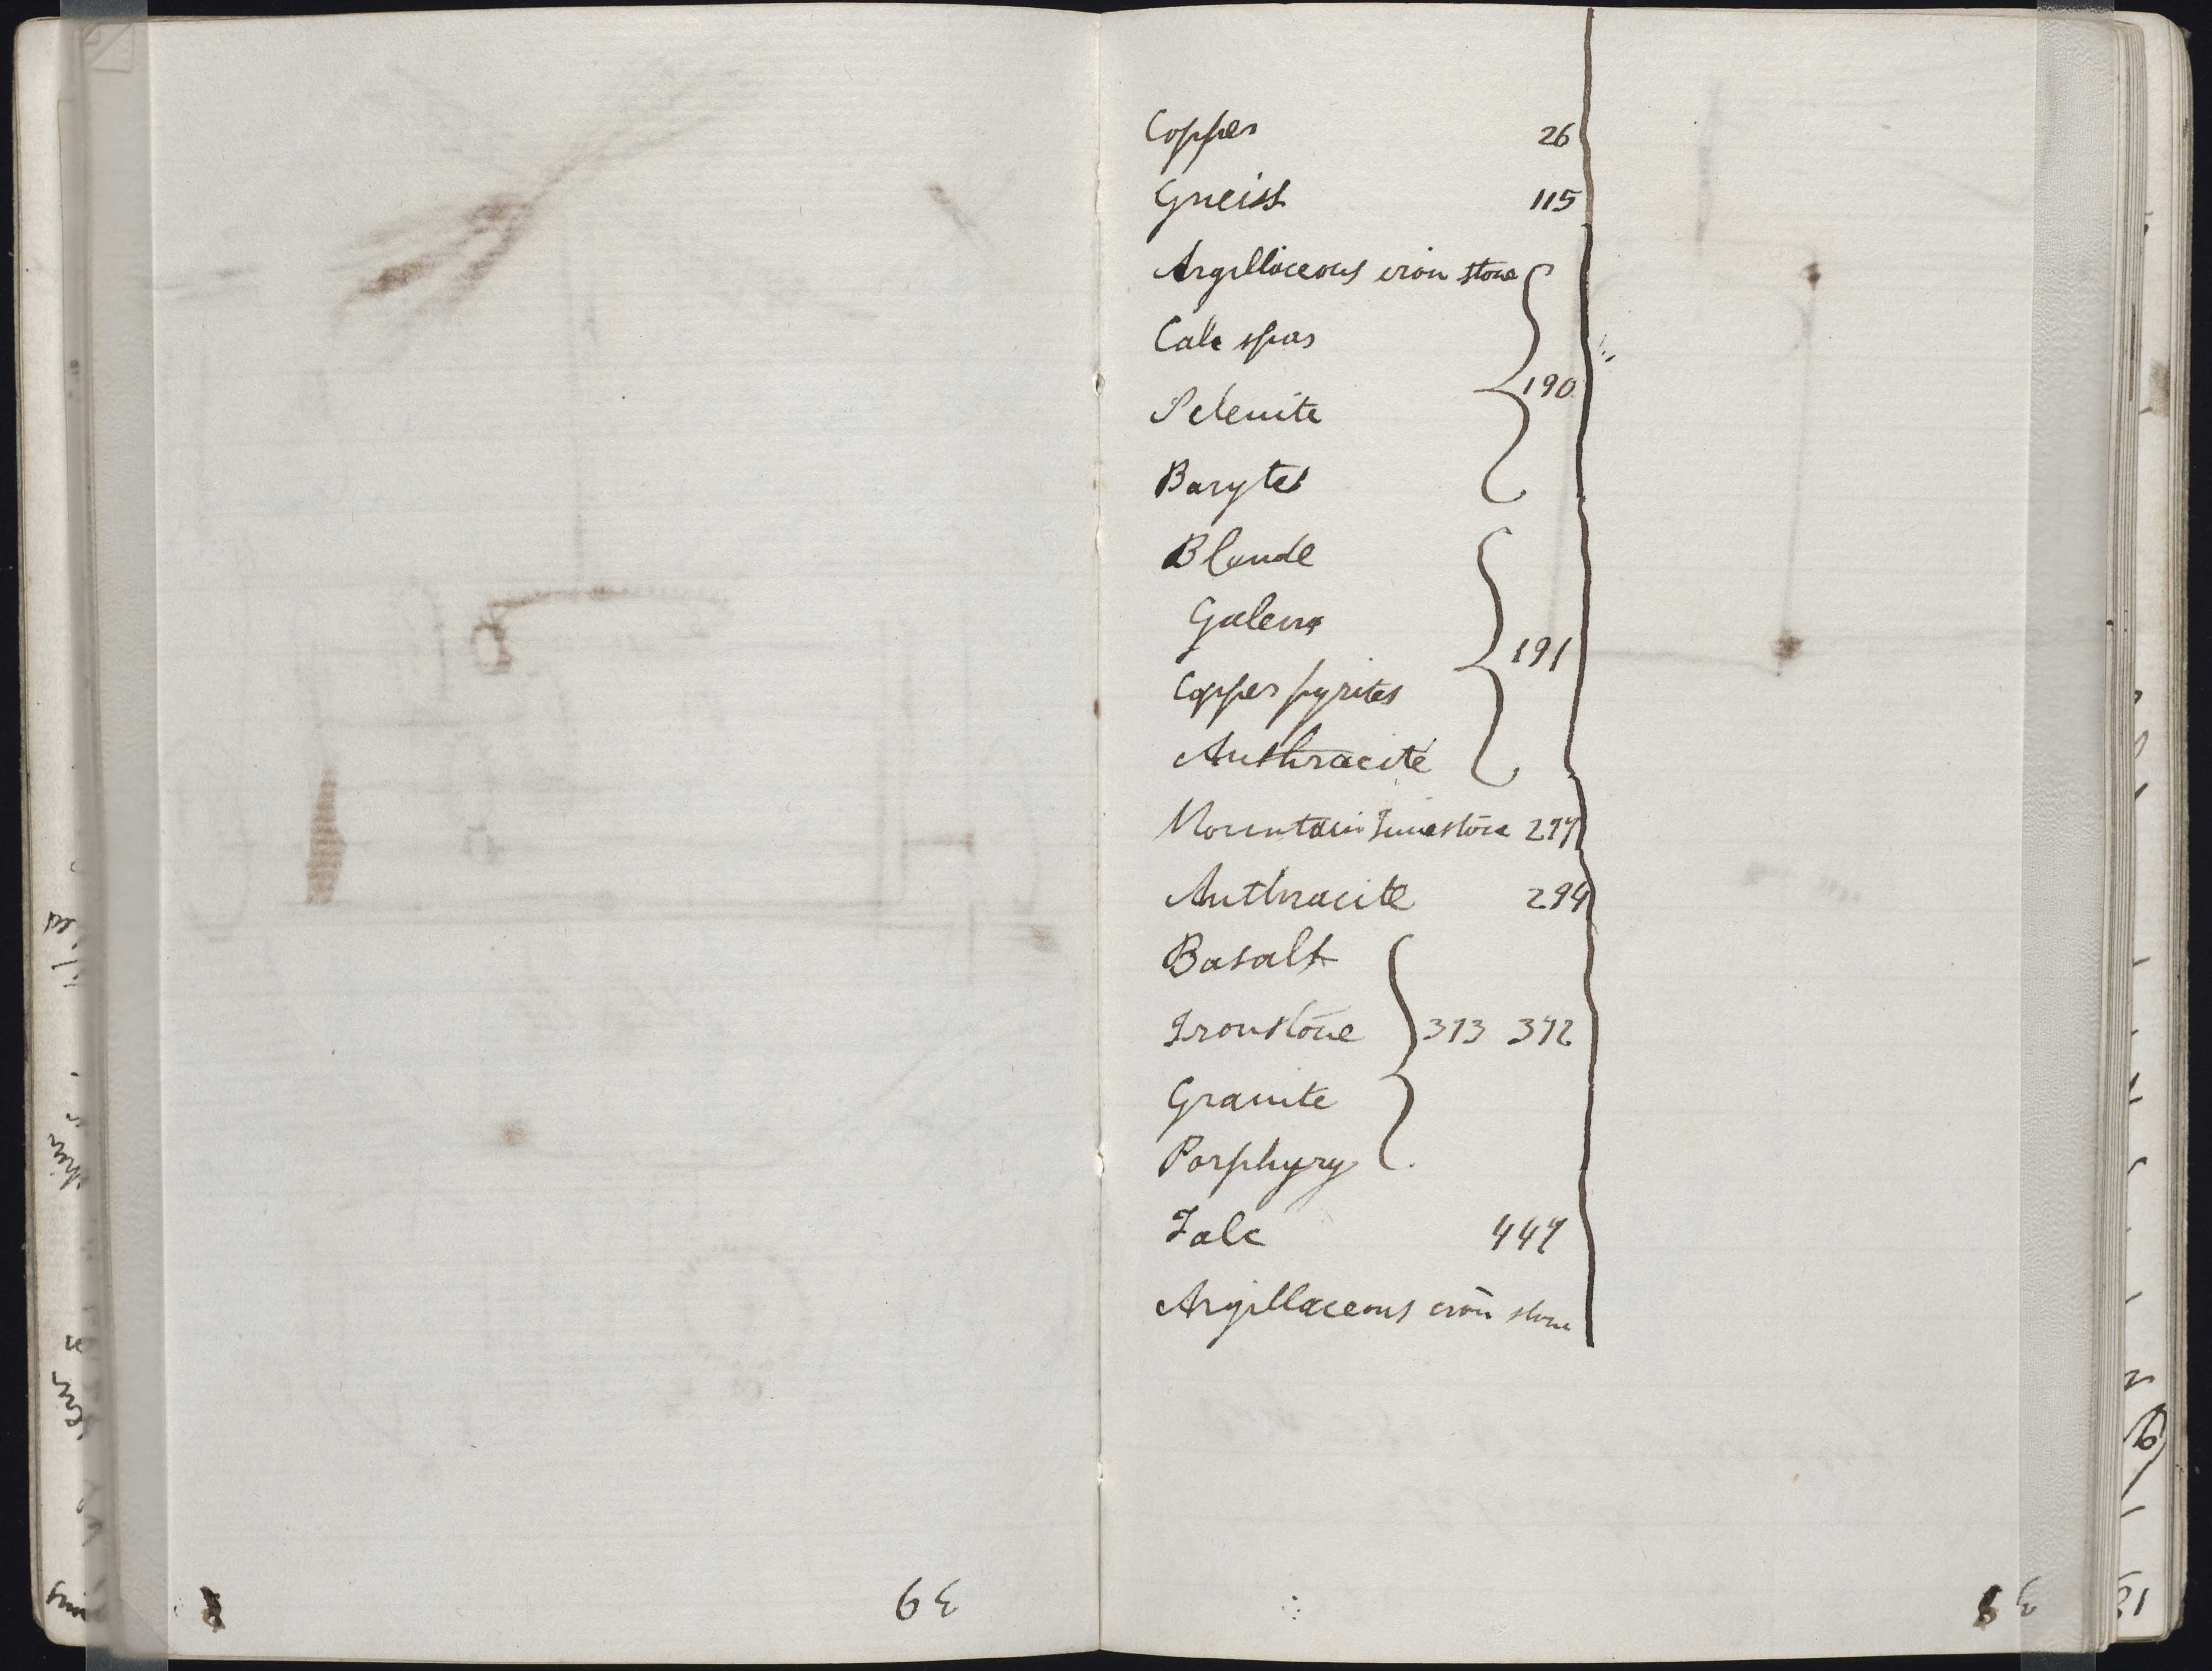 Copper 26
Gneiss 115
Argillaceous iron stone
Calc spar
Selenite 190
Barytes
Blende
Galena
Copper pyrites 191
Anthracite
Mountain Limestone 297
Anthracite 294
Basalt
Ironstone 373 372
Granite
Porphyry
Talc 447
Argillaceous iron stone
39